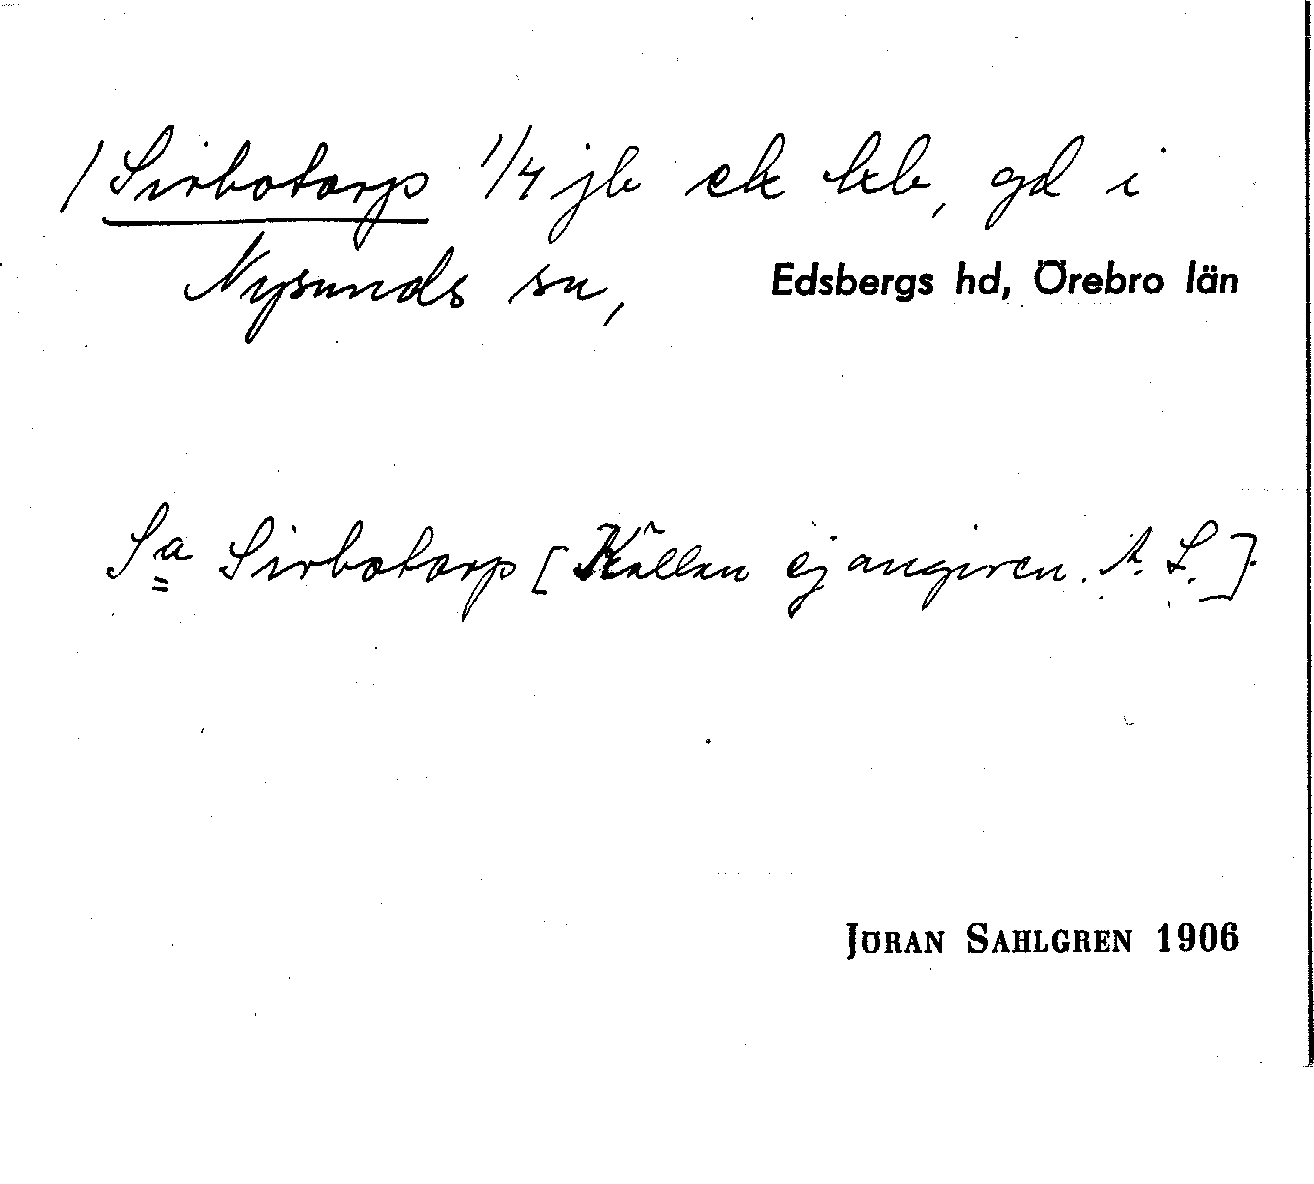 / Sirbotorp 1/4 jb ek kb, gd i
Nysunds sn, Edsbergs hd, Örebro län
Sa Sirbotorp [Källan ej angiven. A. L.].
JÖRAN SAHLGREN 1906